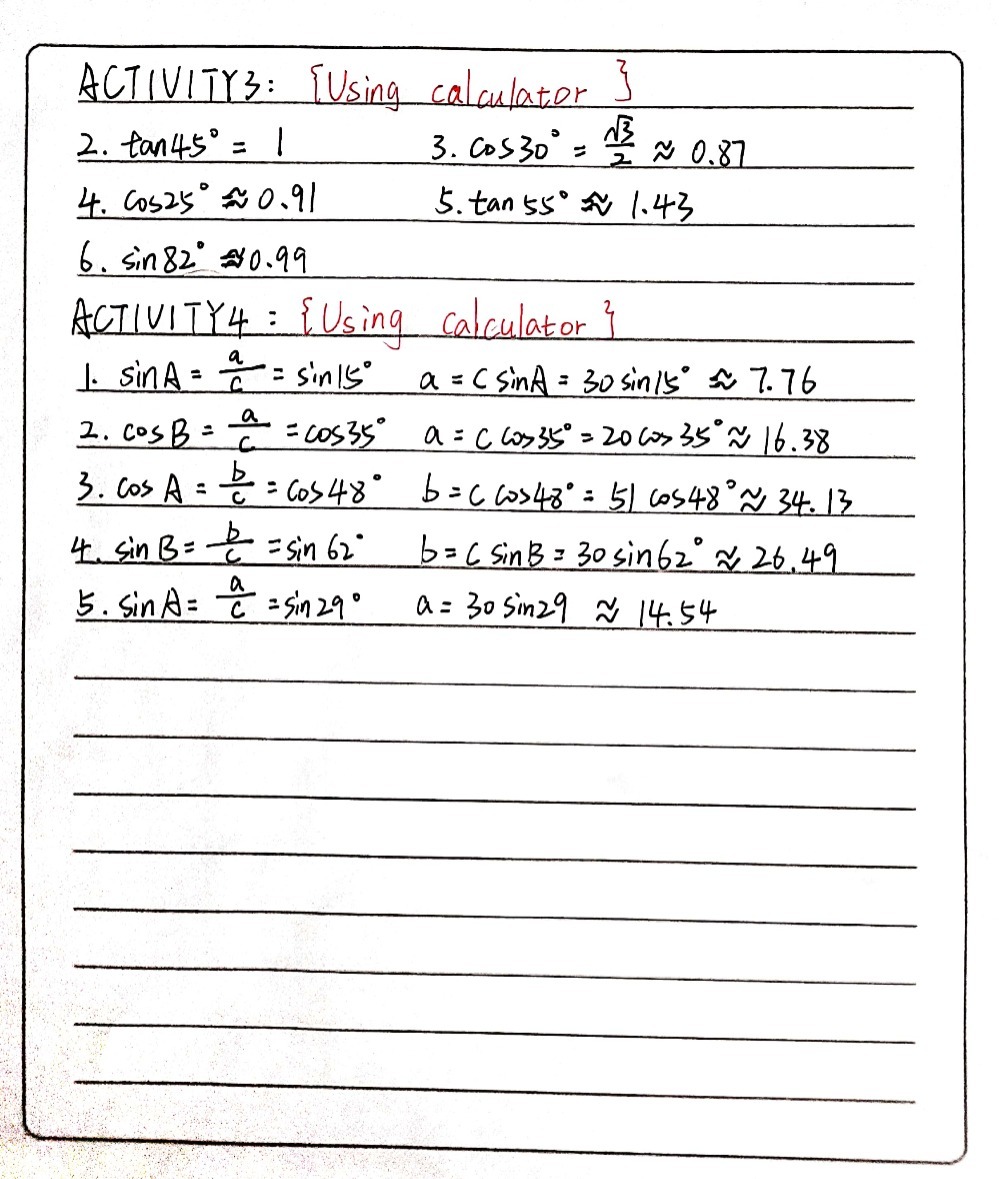 ACTIVITY3: {Using calculator}
2. tan45° = 1 3. cos30° = √3/2 ≈ 0.87
4. cos25° ≈ 0.91 5. tan 55° ≈ 1.43
6. sin82° ≈ 0.99
ACTIVITY4 : {Using calculator}
1. sinA = a/c = sin15° a = c sinA = 30 sin15° ≈ 7.76
2. cosB = a/c = cos35° a = c cos35° = 20 cos35° ≈ 16.38
3. cos A = b/c = cos48° b = c cos48° = 51 cos48° ≈ 34.13
4. sin B = b/c = sin 62° b = c sinB = 30 sin62° ≈ 26.49
5. sin A = a/c = sin29° a = 30 sin29 ≈ 14.54